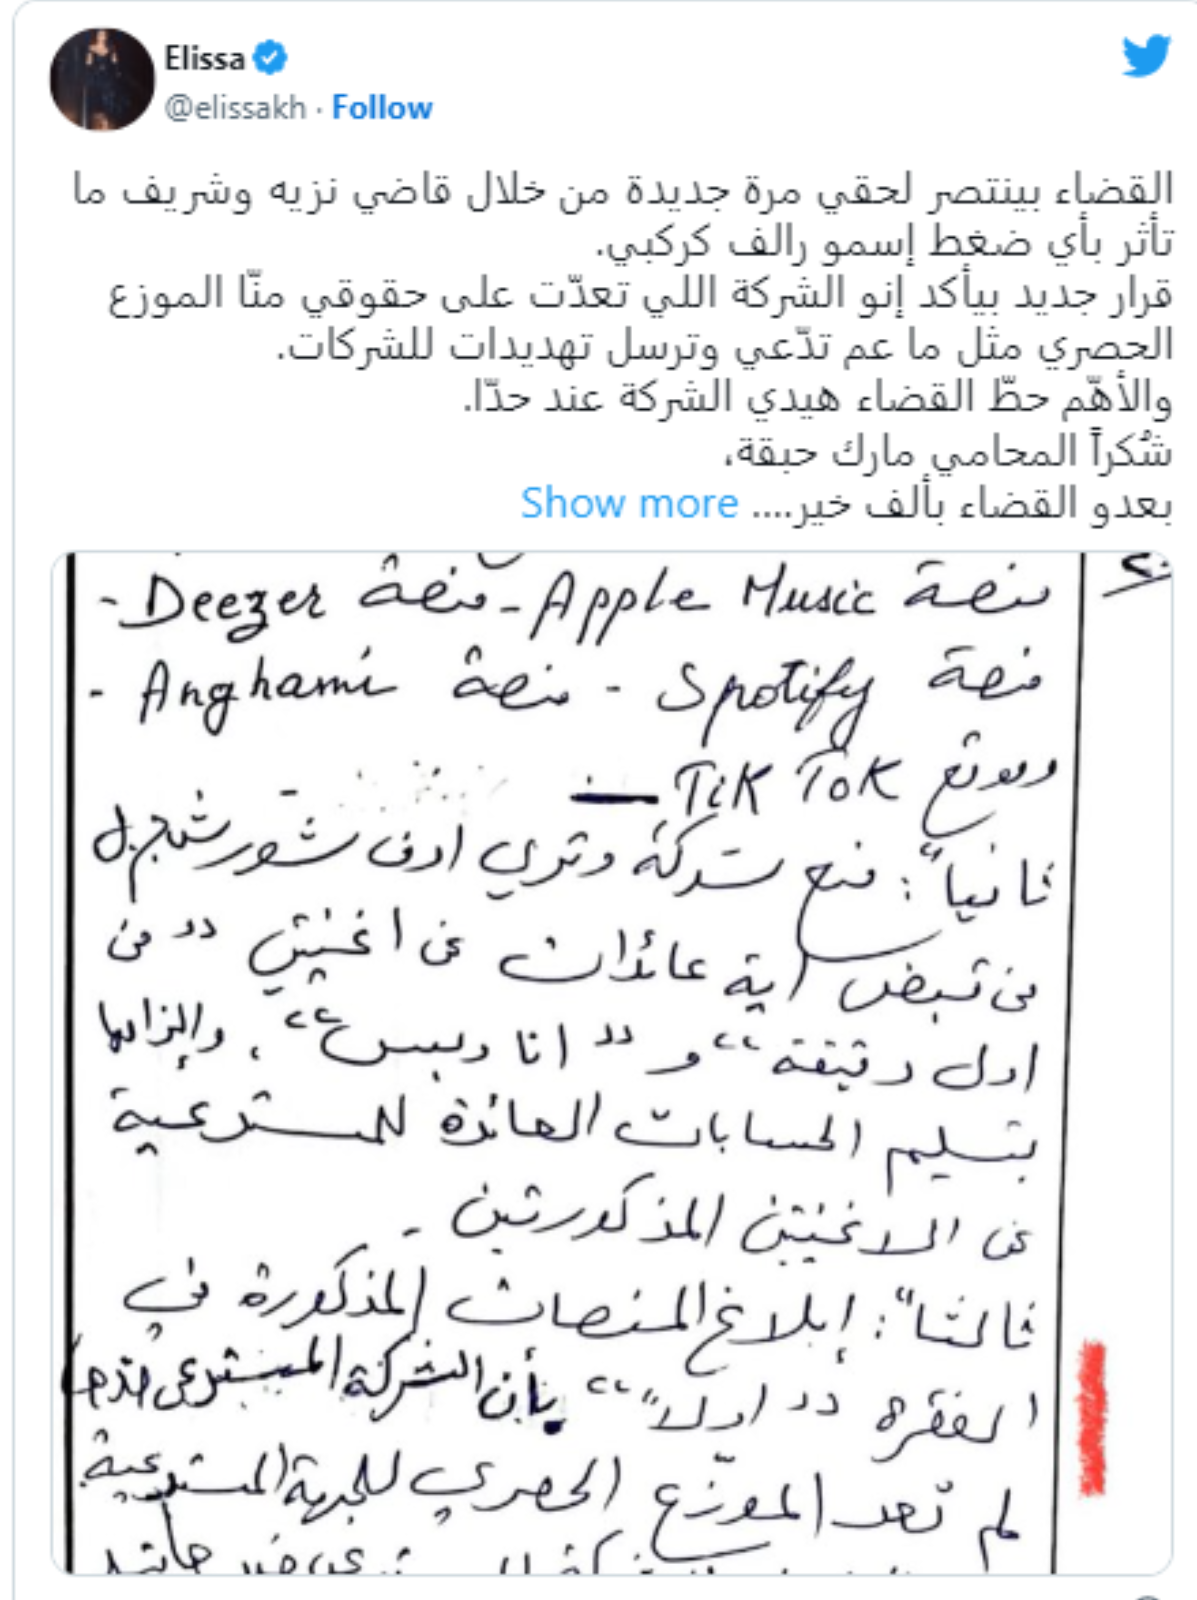 Elissa
@elissakh · Follow
القضاء بينتصر لحقي مرة جديدة من خلال قاضي نزيه وشريف ما
تأثر بأي ضغط إسمو رالف كركبي.
قرار جديد بيأكد إنو الشركة اللي تعدّت على حقوقي منّا الموزع
الحصري مثل ما عم تدّعي وترسل تهديدات للشركات.
والأهّم حطّ القضاء هيدي الشركة عند حدّا.
شُكراً المحامي مارك حبقة،
بعدو القضاء بألف خير.... Show more
منصة Apple Music - منصة Deezer -
منصة Spotify - منصة Anghami -
وموقع TiK ToK
ثانياً: منع شركة وتري اوف شور ش.م.ل
من قبض اية عائدات عن اغنيتي "من
اول دقيقة" و "انا وبس"، وإلزامها
بتسليم الحسابات العائدة للمستدعية
عن الاغنيتين المذكورتين -
ثالثاً: إبلاغ المنصات المذكورة في
الفقرة "اولاً" بأن الشركة المستدعى ضدها
لم تعد الموزّع الحصري للجهة المستدعية